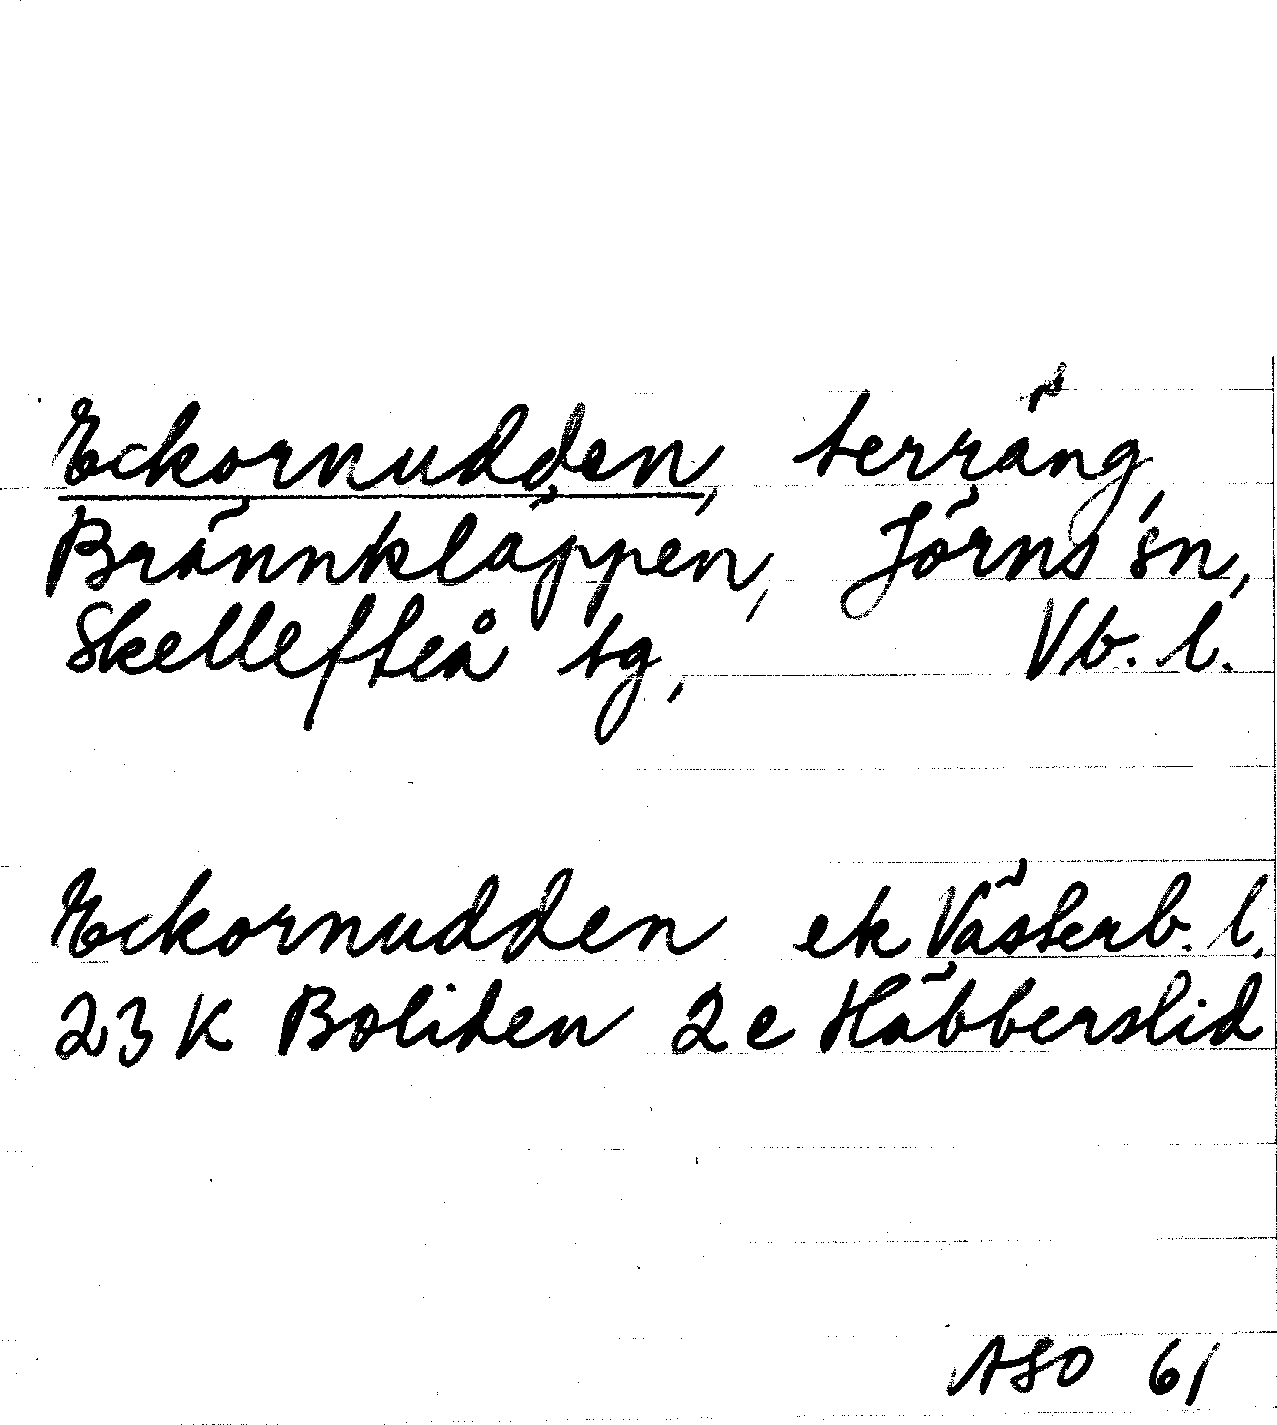 Eckornudden, terräng,
Brännkläppen, Jörns sn,
Skellefteå tg, Vb. l.
Eckornudden ek Västerb. l.
23 K Boliden 2e Häbberslid
ASO 61